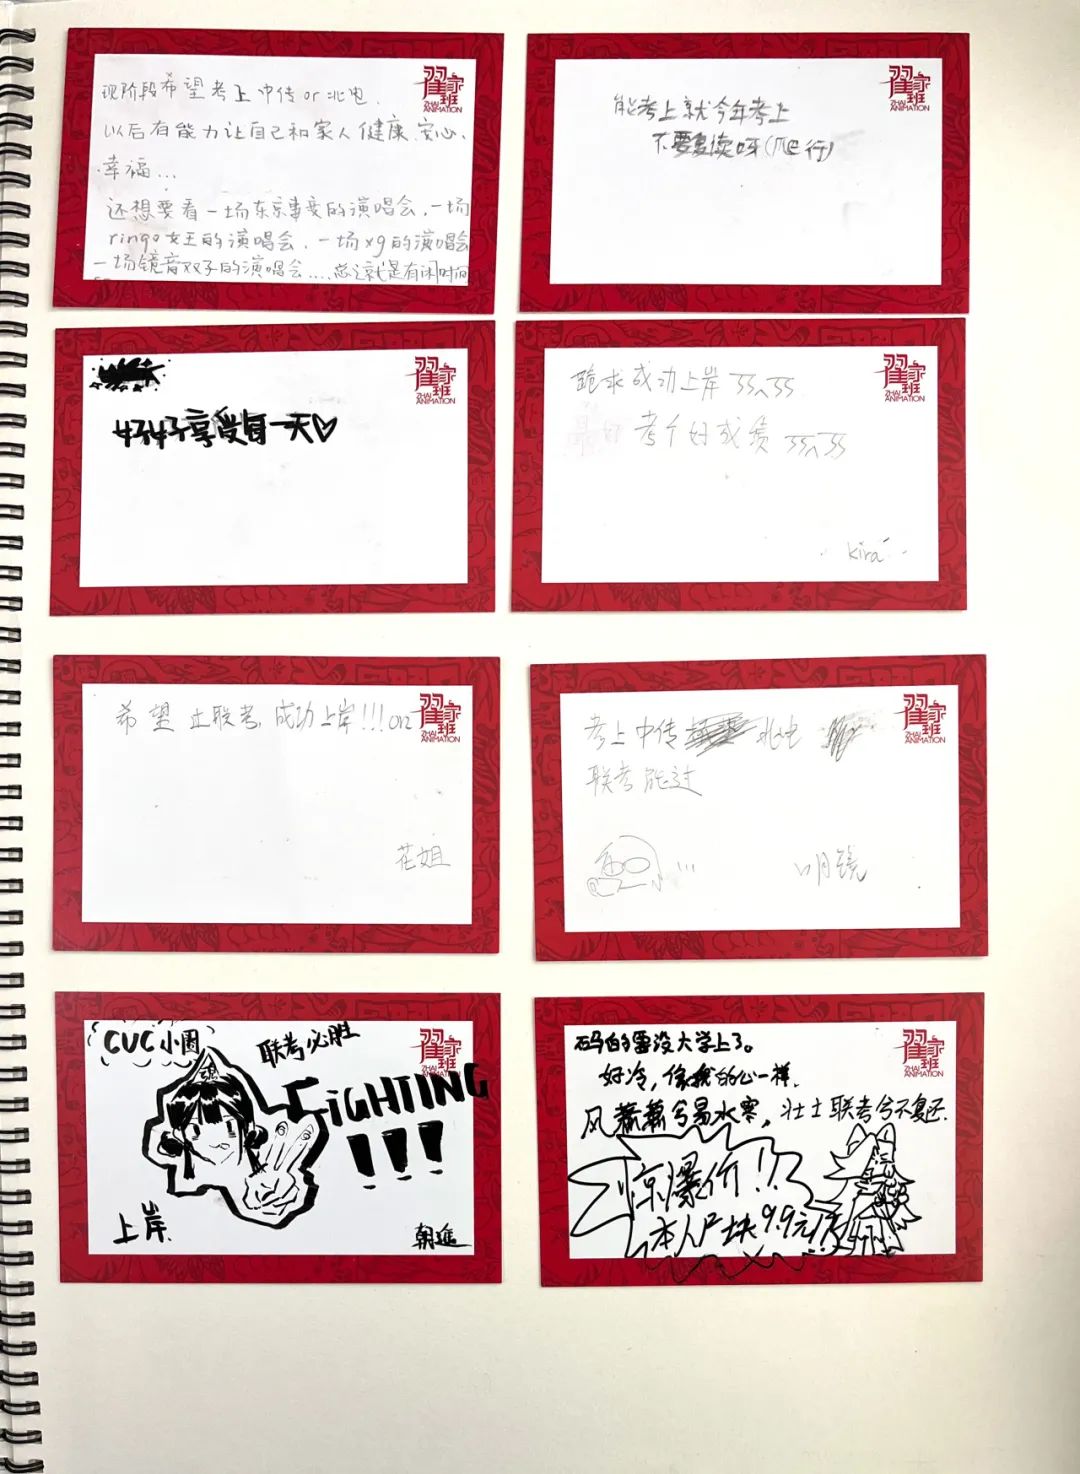 翟家班
ZHAI ANIMATION
现阶段希望考上中传or北电.
以后有能力让自己和家人健康、安心、
幸福...
还想要看一场东京事变的演唱会,一场
ringo女王的演唱会、一场xg的演唱会
一场镜音双子的演唱会....总之就是有闲时间
翟家班
ZHAI ANIMATION
能考上就今年考上
不要复读呀(爬行)
翟家班
ZHAI ANIMATION
好好享受每一天♡
翟家班
ZHAI ANIMATION
跪求成功上岸
最好 考个好成绩
kira
翟家班
ZHAI ANIMATION
希望 联考,成功上岸!!!orz
花姐
翟家班
ZHAI ANIMATION
考上中传 北电
联考能过
...
明镜
翟家班
ZHAI ANIMATION
CUC小圈
联考必胜
FiGHTING
!!!
上岸.
朝
翟家班
ZHAI ANIMATION
码的要没大学上了。
好冷,像我的心一样.
风萧萧兮易水寒,壮士联考兮不复还.
惊爆价!!
本人尸块9.9元1斤